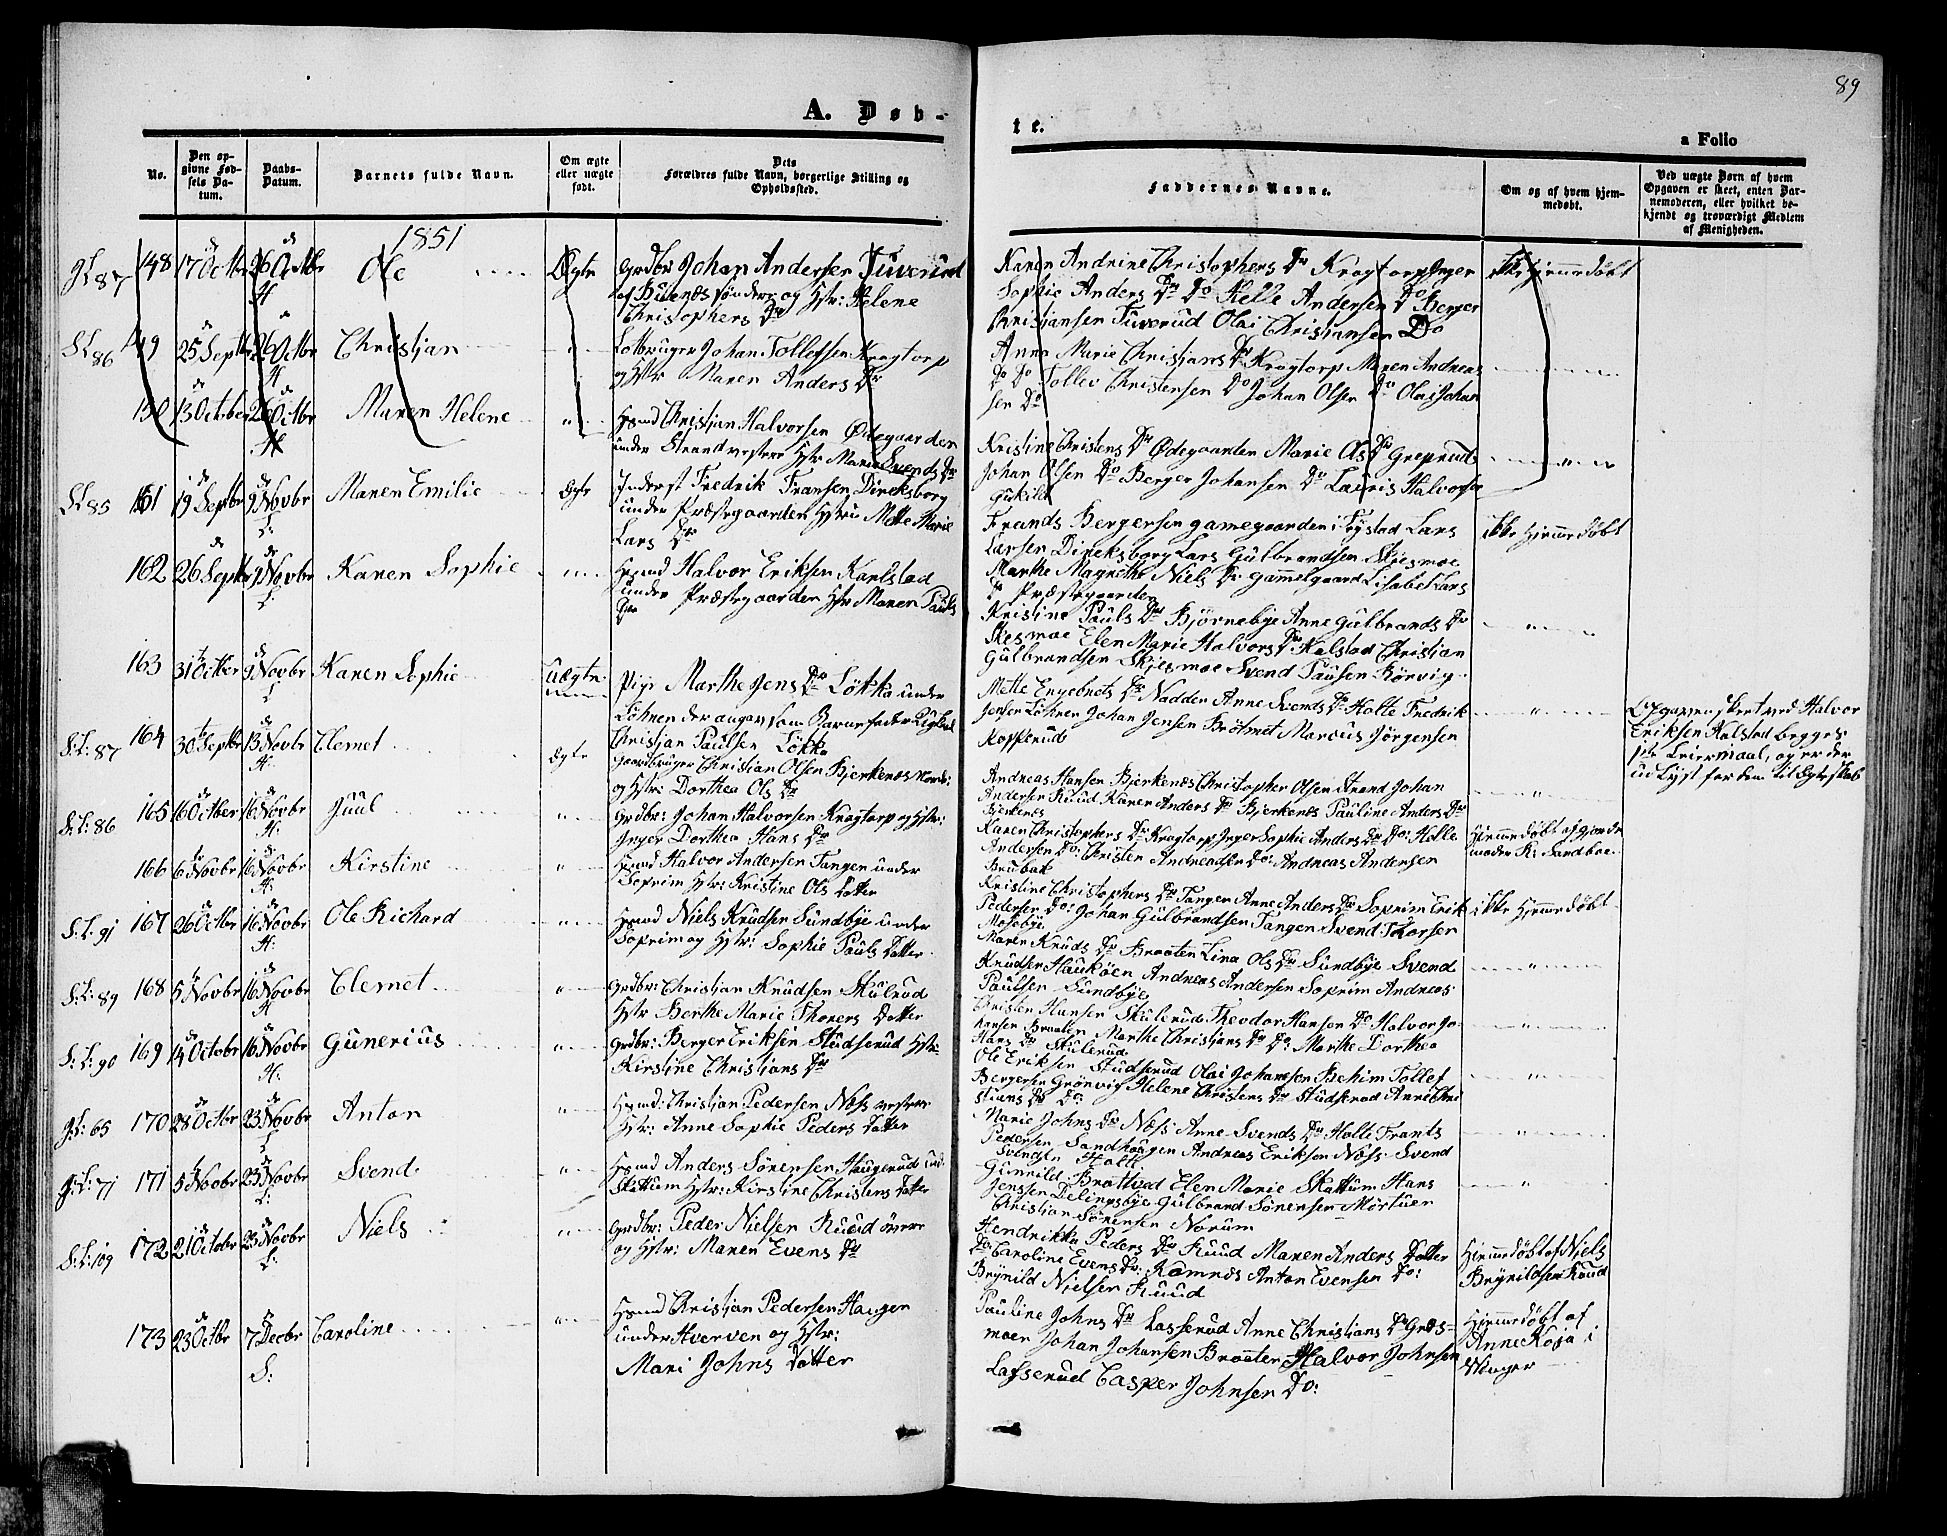 89
A. Døb-
te.
a Folio
No.
Den op-
givne Fød-
sels Da-
tum.
Daabs-
Datum.
Barnets fulde Navn.
Om ægte
eller uægte
født.
Dets
Forældres fulde Navn, borgerlige Stilling og
Opholdssted.
Faddernes Navne.
Om og af hvem hjem-
medøbt.
Ved uægte Børn af hvem
Opgaven er skeet, enten Bar-
nemoderen, eller hvilket be-
kjendt og troværdigt Medlem
af Menigheden.
1851
148 17 Octbr 26 Octbr Ole Ægte Grdbr Johan Andersen Tuverud
H
af Buenæs søndre og Hstr: Helene
Christophers Dr
Karen Andrine Christophers Dr Kragtorp Inger
Sophie Anders Dr Do Helle Andersen Do Berger
Christjansen Tuverud Olai Christiansen Do
ikke hjemmedøbt
S.L. 86 149 25 Septbr 26 Octbr Christjan " Lotbruger Johan Tollefsen Kragtorp
H
og Hstr Maren Anders Dr
Anne Marie Christjans Dr Kragtorp Maren Andreas
Do Do Tollev Christensen Do Johan Olsen Do Olai Johan
sen Do
150 13 October 26 Octbr Maren Helene " Hsmd Christjan Halvorsen Ødegaarden
H
under Strand vestere Hstr Marie Svends Dr
Kristine Christens Dr Ødegaarden Marie Ols Dr Greprud
Johan Olsen Do Berger Johansen Do Lauris Halvorsen
"
S.L. 85 161 19 Septbr 9 Novbr Maren Emilie Ægte Inderst Fredrik Fransen Direksborg
L:
under Præstegaarden Hstr: Mette Marie
Lars Dr
Frands Bergersen gamegaarden i Frystad Lars
Larsen Direksborg Lars Gulbrandsen Skjesmoe
Marthe Magrethe Niels Dr Gamelgaard Lisabet Lars
Dr Præstegaarden
ikke hjemmedøbt
162 26 Septbr 9 Novbr Karen Sophie " Hsmd Halvor Eriksen Karlstad
L:
under Præstegaarden Hstr Maren Pauls
Dr
Kristine Pauls Dr Bjørnebye Anne Gulbrands Dr
Skesmoe Elen Marie Halvors Dr Kalstad Christian
Gulbrandsen Skjesmoe Svend Paulsen Rørvig
"
163 31 Octber 9 Novbr Karen Sophie Uægte Pige Marthe Jens Dr Løkka under
L
Løknen der angav som Barnefader Ligl
Christjan Paulsen Løkka
Mette Engebrets Dr Nadden Anne Svends Dr Holte Fredrik
Jensen Løkner Johan Jensen Brøtmet Marcus Jørgensen
Kopperud
"
Opgaven skeet ved Halvor
Eriksen Kalstad begges
1ste Leiermaal, og er der
udlyst for dem til Egteskab
S.L: 87 164 30 Septbr 13 Novbr Clemet Ægte Gaardbruger Christian Olsen Bjerkenæs Nordre
H.
og Hstr: Dorthea Ols Dr
Andreas Hansen Bjerkenæs Christopher Olsen Strand Johan
Andersen Ruud Karen Anders Dr Bjerkenæs Pauline Anders Dr
Bjerkenæs
"
S.L: 86 165 16 Octber 16 Novbr Juul " Grdbr: Johan Halvorsen Kragtorp og Hstr:
H:
Inger Dorthea Hans Dr
Karen Christophers Dr Kragtorp Inger Sophie Anders Dr Do: Helle
Andersen Do: Christen Andreasen Do: Andreas Andersen
Brubak
Hjemmedøbt af gjorde
moder K: Sandboe.
166 6 Novbr 16 Novbr Kirstine " Hsmd Halvor Andersen Tangen under
H:
Soprim Hstr: Kristine Ols Datter
Kristine Christophers Dr Tangen Anne Anders Dr Soprim Erik
Pedersen Do: Johan Gulbrandsen Tangen Svend Thorsen
Mosebye
ikke hjemmedøbt
S.L. 91 167 26 Octbr 16 Novbr Ole Richard " Hsmd Niels Knudsen Sundbye under
H:
Soprim og Hstr: Sophie Pauls Datter
Maren Knuds Dr Braaten Lina Ols Dr Sundbye Svend
Knudsen Haukøen Andreas Andersen Soprim Andreas
Paulsen Sundbye
"
S.L: 89 168 5 Novbr 16 Novbr Clemet " Grdbr: Christjan Knudsen Skulrud
H
Hstr Berthe Marie Thorers Datter
Christen Hansen Skulerud Theodor Hansen Do Halvor Jo
hansen Braaten Marthe Christjans Dr Do: Marthe Dorthea
Hans Dr Skulerud
"
S.L: 90 169 14 Octobr 16 Novbr Gunerius " Grdbr: Berger Eriksen Studserud Hstr:
H:
Kirstine Christians Dr
Ole Eriksen Studserud Olai Johannesen Bekim Tollef
Bergersen Grønvig Helene Christens Dr Studserud Anne Chri
stians Dr Do.
"
J.L: 65 170 28 Octbr 23 Novbr Anton " Hsmd: Christjan Pedersen Næss vestere
L
Hstr: Anne Sophie Peders Datter
Marie Johns Dr Næss Anne Svends Dr Holte Frants
Pedersen Sandhaugen Andreas Eriksen Næss Svend
Svendsen Holte
"
J.L: 71 171 5 Novbr 23 Novbr Svend " Hsmd Anders Sørensen Haugerud und
L:
Skattum Hstr: Kirstine Christens Datter
Gunnild Brattved Elen Marie Skattum Hans
Jensen Delingsbye Gulbrand Sørensen Mørtuer
Christjan Sørensen Norum
"
S.L: 109 172 21 Octobr 23 Novbr Niels " Grdbr: Peder Nielsen Ruud øvere
L:
og Hstr: Maren Evens Dr
Hendrikka Peders Dr Ruud Maren Anders Datter
Do Caroline Evens Do: Komnæs Anton Evensen Do:
Brynild Nielsen Ruud
Hjemmedøbt af Niels
Brynildsen Ruud
173 23 Octbr 7 Decbr Caroline " Hsmd Christjan Pedersen Haugen
S:
under Hverven og Hstr:
Mari Johns Datter
Pauline Johns Dr Lasserud Anne Christians Dr Græs-
moen Johan Johansen Braaten Halvor Johnsen
Lasserud Casper Johnsen Do:
Hjemmedøbt af
Anne Koja i